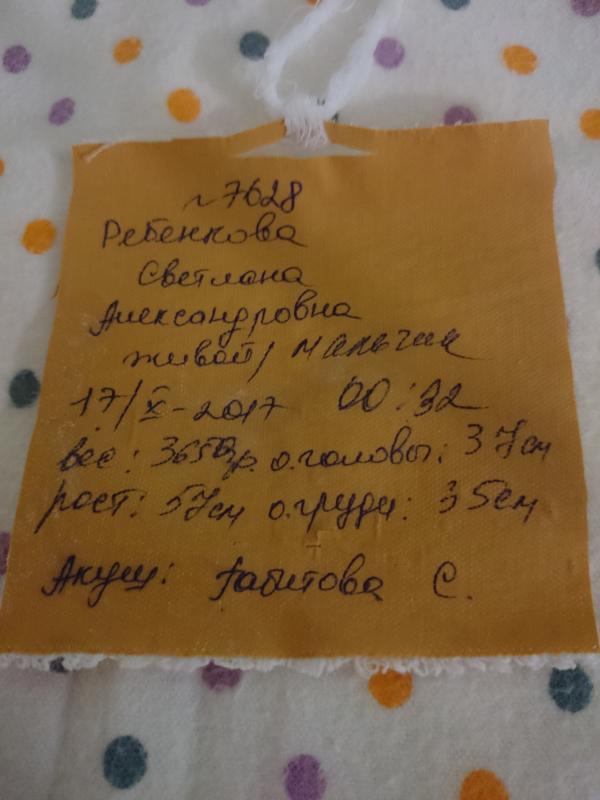 №7628
Ребенкова
Светлана
Александровна
живой/ мальчик
17/X-2017 00:32
вес: 3650гр. о.головы: 37см
рост: 57см о.груди: 35см
Акуш: Габитова С.